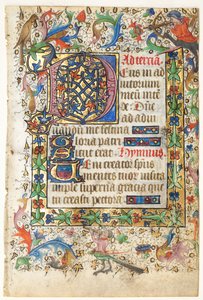 Ad terciā.
Eus in ad
iutorium
meū inte
de. Dñe
ad adiu
uandū me festina
Gloria patri
Sicut erat. Hymnus.
Ueni creator spūs
mentes tuor uisita
imple superna gracia que
tu creasti pectora